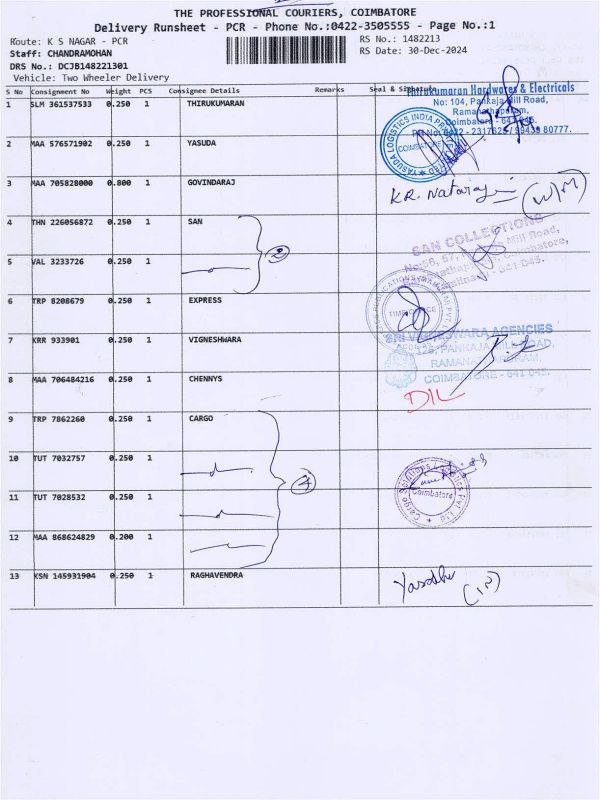 THE PROFESSIONAL COURIERS, COIMBATORE
Delivery Runsheet - PCR - Phone No.:0422-3505555 - Page No.:1
Route: K S NAGAR - PCR
RS No.: 1482213
Staff: CHANDRAMOHAN
RS Date: 30-Dec-2024
DRS No.: DCJB148221301
Vehicle: Two Wheeler Delivery
S No Consignment No Weight PCS Consignee Details Remarks Seal & Signature
1 SLM 361537533 0.250 1 THIRUKUMARAN
Thirukumaran Hardwares & Electricals
No: 104, Pankaja Mill Road,
Ramanathapuram,
Coimbatore - 641 045.
YASUDA LOGISTICS INDIA
COIMBATORE
2 MAA 576571902 0.250 1 YASUDA
3 MAA 705828000 0.800 1 GOVINDARAJ
KR. Natarajan
4 THN 226056872 0.250 1 SAN
2
SAN COLLECTIONS
Mill Road,
Coimbatore,
641 045.
5 VAL 3233726 0.250 1
6 TRP 8208679 0.250 1 EXPRESS
TIME OFFICE
7 KRR 933901 0.250 1 VIGNESHWARA
SRI VIGNESWARA AGENCIES
126, PANKAJA MILL ROAD,
RAMANATHAPURAM,
COIMBATORE - 641 045.
8 MAA 706484216 0.250 1 CHENNYS
DIL
9 TRP 7862260 0.250 1 CARGO
4
10 TUT 7032757 0.250 1
Cargo Solutions Logistics Pvt Ltd
Coimbatore
11 TUT 7028532 0.250 1
12 MAA 868624829 0.200 1
13 KSN 145931904 0.250 1 RAGHAVENDRA